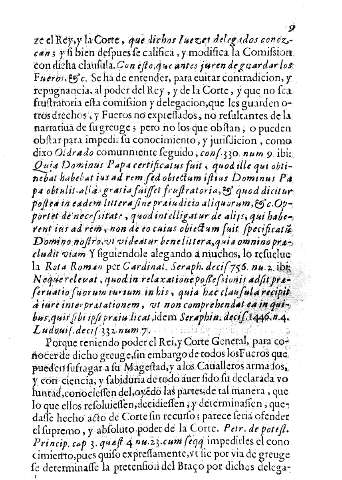 9
ze el Rey, y la Corte, que dichos Iuezes delegados conoz-
can; y si bien despues se califica, y modifica la Comission
con dicha clausula. Con esto, que antes juren de guardar los
Fueros, &c. Se ha de entender, para euitar contradicion, y
repugnancia, al poder del Rey, y de la Corte, y que no sea
frustratoria esta comision y delegacion, que les guarden o-
tros drechos, y Fueros no expressados, no resultantes de la
narratiua de su greuge; pero no los que obstan, o pueden
obstar para impedir su conocimiento, y jurisdiccion, como
dixo Oldrado comunmente seguido, cons. 330. num 9. ibi:
Quia Dominus Papa certificatus fuit, quod ille qui obti-
nebat habebat ius ad rem sed obiectum istius Dominus Pa
pa obtulit. aliàs gratia fuisset frustratoria, & quod dicitur
postea in eadem littera sine praiudicio aliquorum, &c. Op-
portet de necessitate, quod intelligatur de alijs, qui habe-
rent ius ad rem, non de eo cuius obiectum fuit specificatũ
Domino nostro. vt videatur bene littera, quia omnino præ-
cludit viam Y siguiendole alegando à muchos, lo resuelue
la Rota Roman per Cardinal. Seraph. decis 756. nu. 2. ibi
Neque releuat, quod in relaxatione possessionis adsit præ-
seruatio suorum iurium in his, quia hæc clausula recipit
à iure interpretationem, vt non comprehendat ea in qui-
bus, quis sibi ipsi præiudicat, idem Seraphin. decis. 1446. n. 4.
Ludouis. decis. 332 num 7.
Porque teniendo poder el Rey, y Corte General, para co-
nocer de dicho greuge, sin embargo de todos los Fueros que
pueden sufragar a su Magestad, y a los Caualleros armados,
y con ciencia, y sabiduria de todo auer sido su declarada vo
luntad, conociessen del, oyẽdo las partes, de tal manera, que
lo que ellos resoluiessen, decidiessen, y determinassen, que-
dasse hecho acto de Corte sin recurso; parece seria ofender
el supremo, y absoluto poder de la Corte. Petr. de potest.
Princip. cap 3. quæst 4 nu. 23. cum seqq impedirles el cono
cimiento, pues quiso expressamente, vt sic por via de greuge
se determinasse la pretension del Braço por dichos delega-